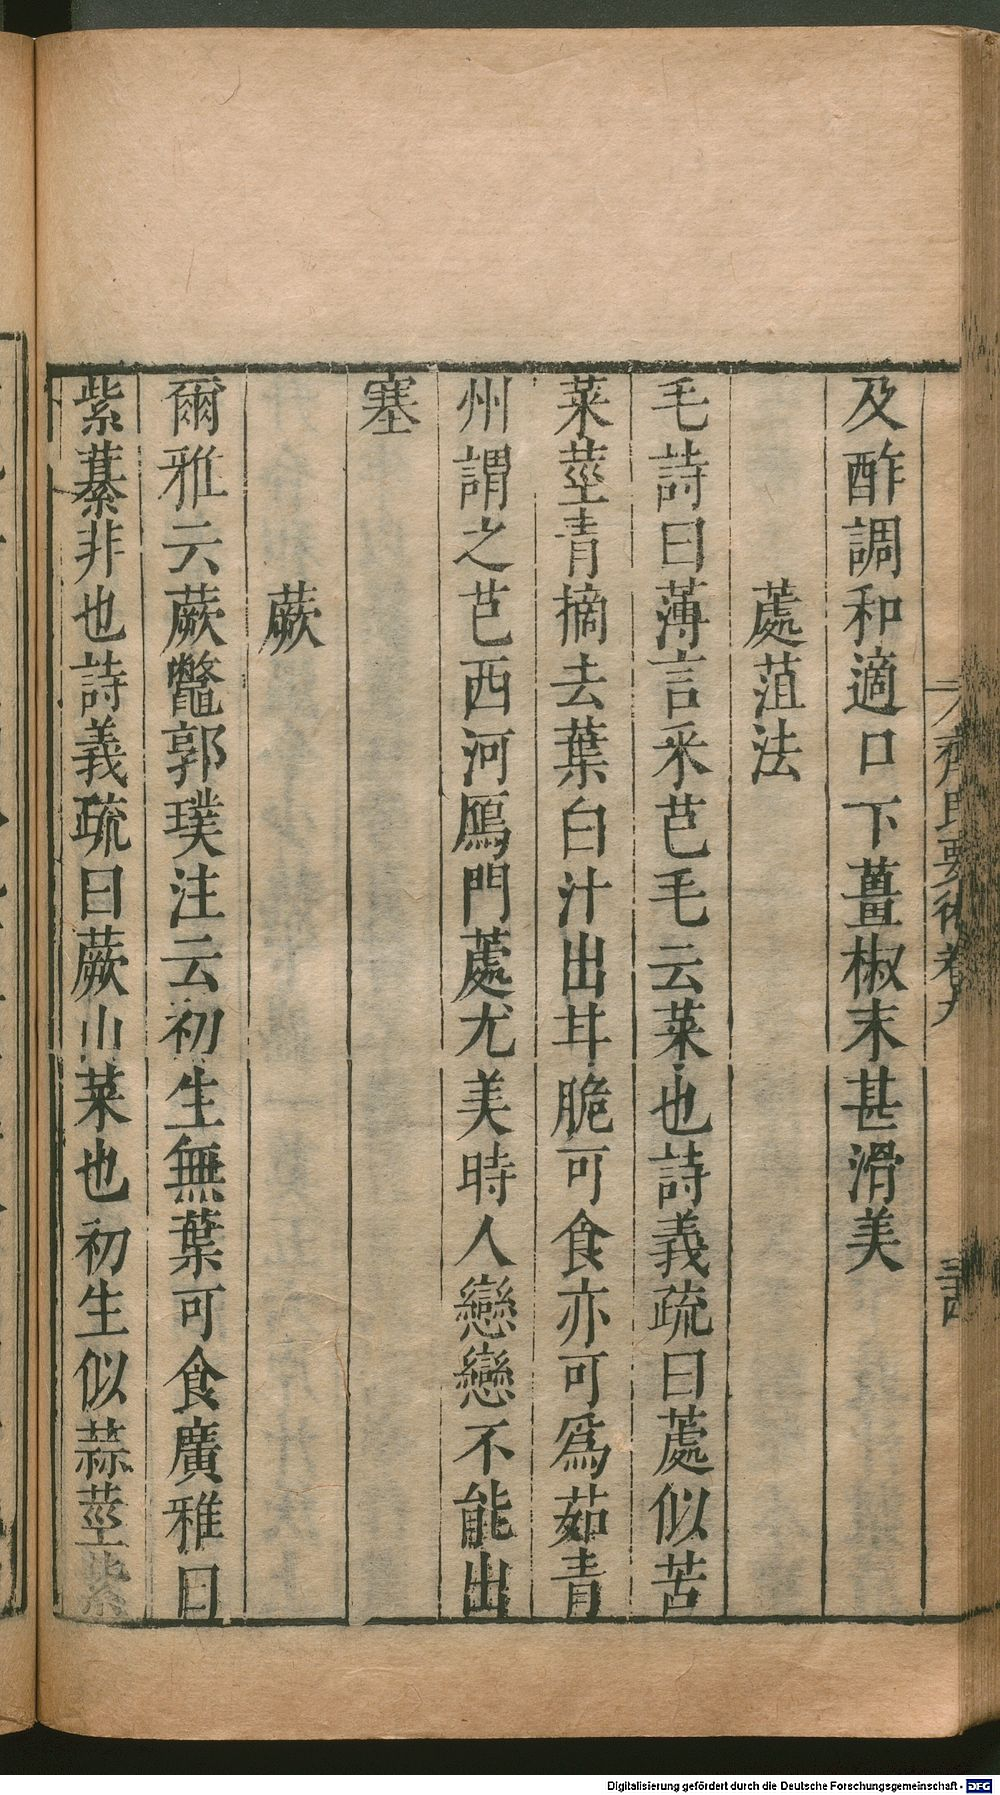 齊民要術卷九
三四
及酢調和適口下薑椒末甚滑美
蘧菹法
毛詩曰薄言采芑毛云菜也詩義疏曰蘧似苦
菜莖青摘去葉白汁出甘脆可食亦可爲茹青
州謂之芑西河鴈門蘧尤美時人戀戀不能出
塞
蕨
爾雅云蕨虌郭璞注云初生無葉可食廣雅曰
紫藄非也詩義疏曰蕨山菜也初生似蒜莖紫
Digitalisierung gefördert durch die Deutsche Forschungsgemeinschaft - DFG